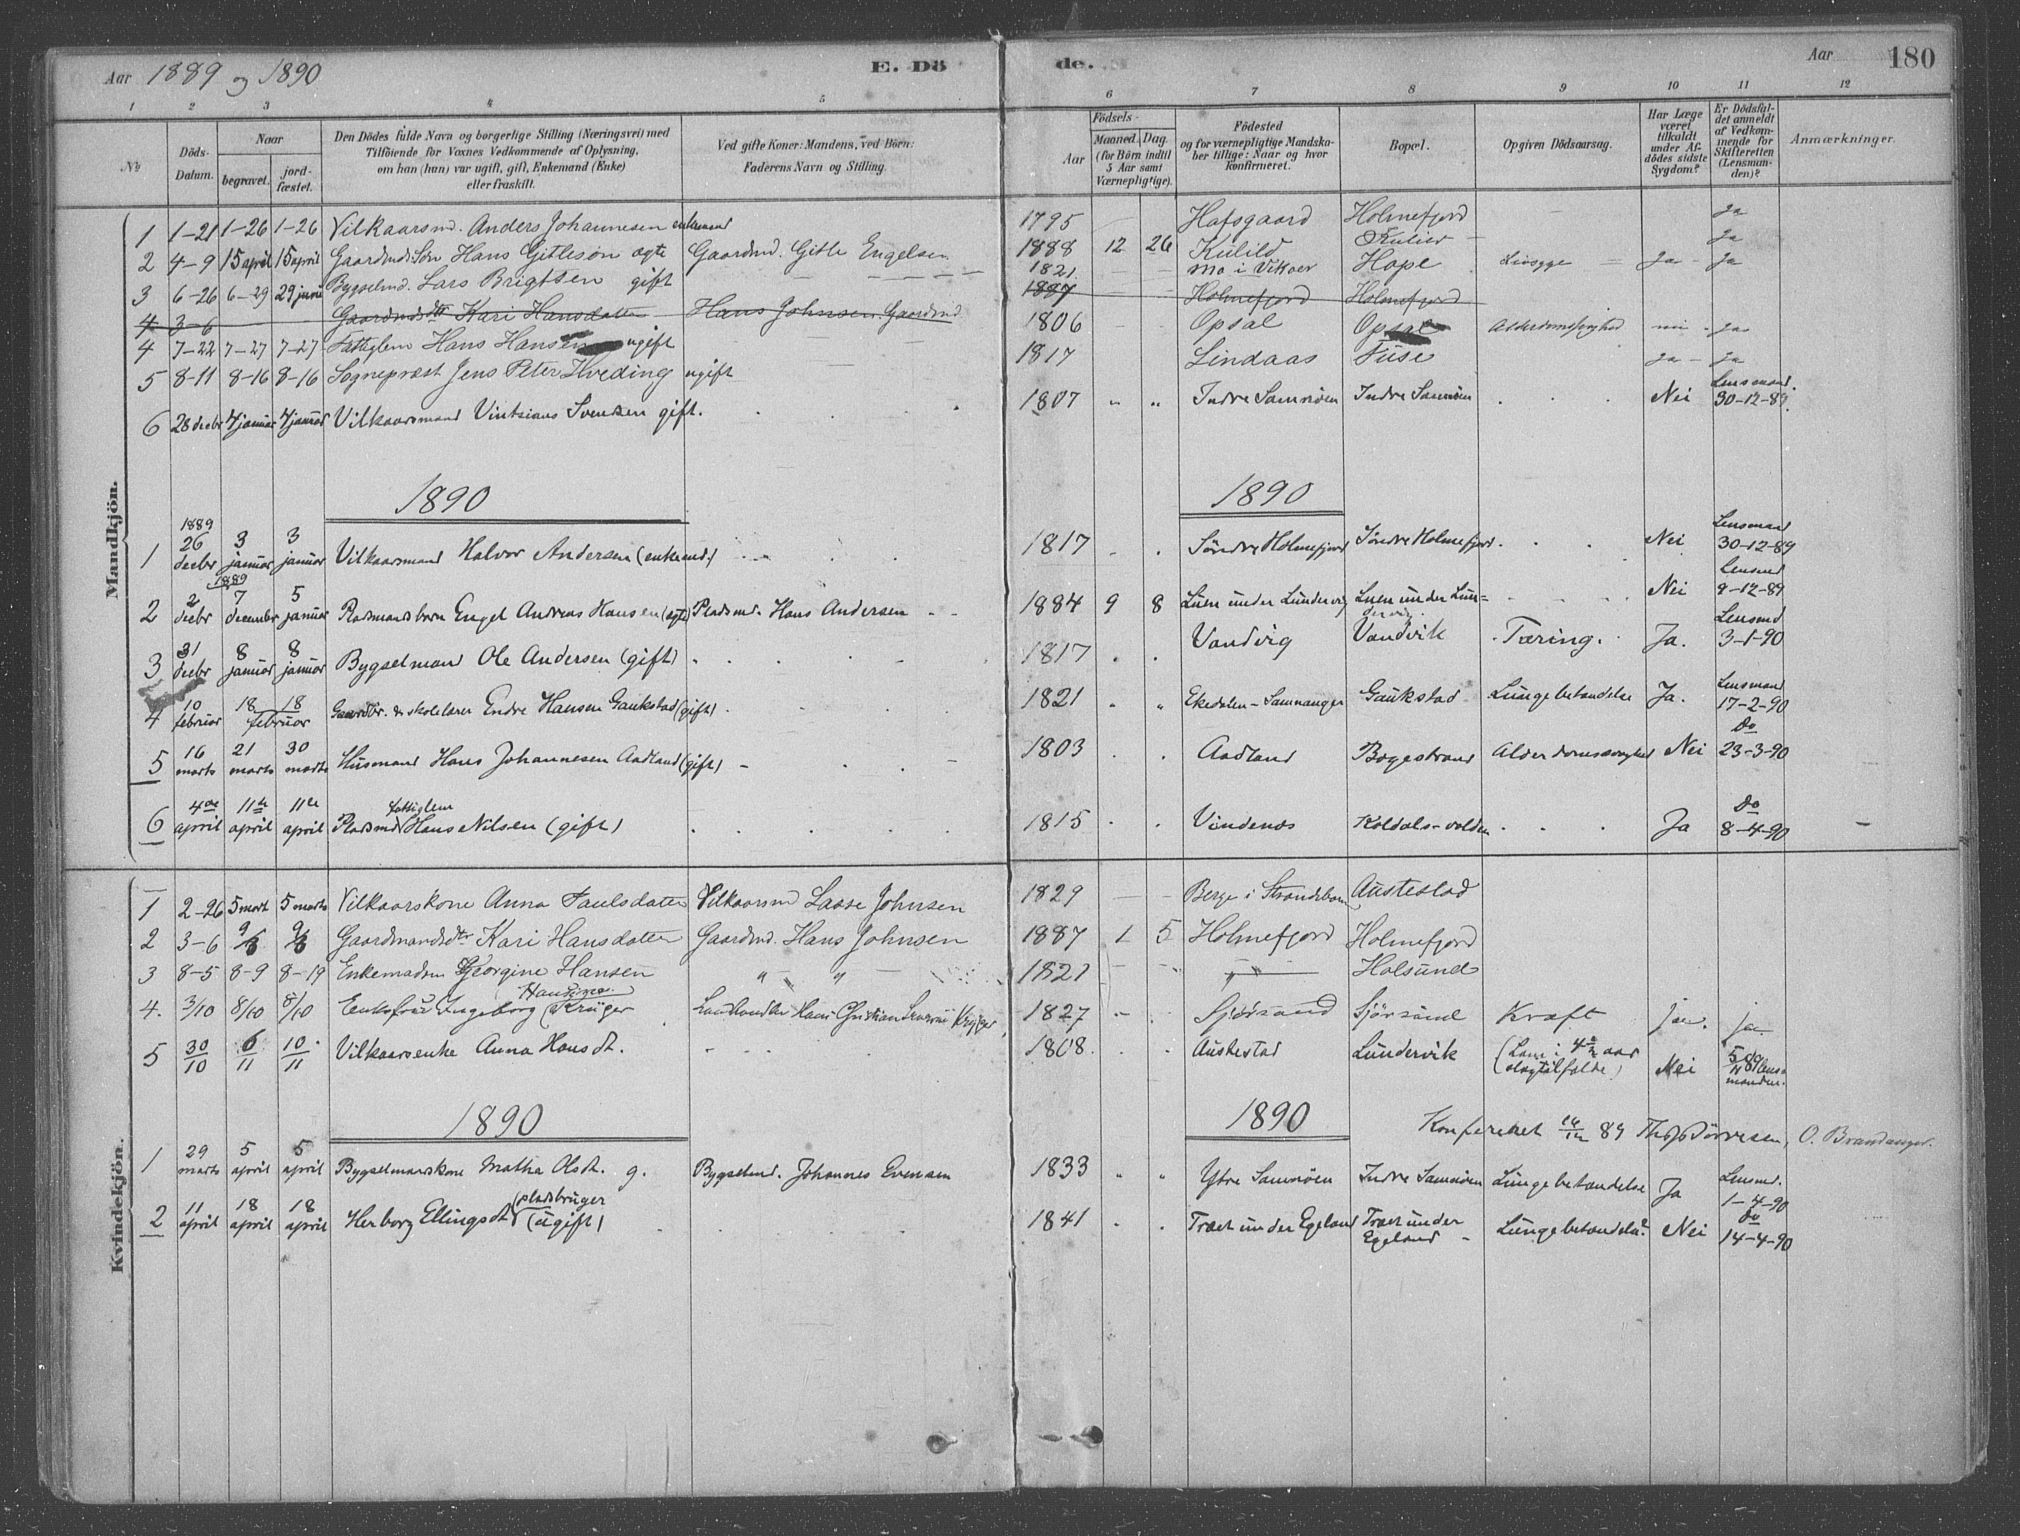 Aar 1889 og 1890 E. Dö de. Aar 180
1 2 3 4 5 6 7 8 9 10 11 12
No
Döds-Datum.
Naar
begravet.
jord-fæstet.
Den Dödes fulde Navn og borgerlige Stilling (Næringsvei) med
Tilföiende for Voxnes Vedkommende af Oplysning,
om han (hun) var ugift, gift, Enkemand (Enke)
eller fraskilt.
Ved gifte Koner: Mandens, ved Börn:
Faderens Navn og Stilling.
Födsels-
Aar
Maaned. Dag.
(for Börn indtil
5 Aar samt
Værnepligtige).
Födested
og for værnepligtige Mandska-
ber tillige: Naar og hvor
konfirmeret.
Bopæl.
Opgiven Dödsaarsag.
Har Læge
været
tilkaldt
under Af-
dödes sidste
Sygdom?
Er Dödsfal-
det anmeldt
af Vedkom-
mende for
Skifteretten
(Lensman-
den)?
Anmærkninger.
Mandkjön.
1 1-21 1-26 1-26 Vilkaarsmd. Anders Johannesen enkemand 1795 Hafsgaard Holmefjord Ja
2 4-9 15 april 15 april Gaardmds Søn Hans Gitleson ægte Gaardmd. Gitle Engelsen 1888 12 26 Kulild Ja
3 6-26 6-29 29 juni Bygselmd. Lars Brigtsen gift 1821 Mo i Vikøer Hope Ja - Ja
4 3-6 Gaardmds dtr Kari Hansdatter Hans Johnsen. Gaardmd 1887 Holmefjord Holmefjord
4 7-22 7-27 7-27 Fattiglem Hans Hansen ugift 1806 Opsal Opsal Alderdomssvaghed - Ja
5 8-11 8-16 8-16 Sognepræst Jens Peter Hveding ugift 1817 Lindaas Fuse Ja - Ja
6 28 decbr 4 januar 4 januar Vilkaarsmand Vintsians Svendsen gift. 1807 " " Indre Samnøen Indre Samnøen Nei Lensmand. 30-12-89.
1890 1890
1 1889 26 decbr 3 januar 3 januar Vilkaarsmand Halvor Andersen (enkemd.) 1817 Søndre Holmefjord Søndre Holmefjord Nei Lensmand 30-12-89
2 1889 2 decbr 7 december 5 januar Pladsmands barn Engel Andreas Hansen (ægte) Pladsmd. Hans Andersen 1884 9 8 Luen under Lundervig Luen under Lundervig Nei Lensmd 9-12-89
3 31 decbr 8 januar 8 januar Bygselmand Ole Andersen (gift) 1817 Vandvig Vandvik Tæring. Ja. Lensmd 3-1-90
4 10 februar 18 18 februar Gaardbr. & skolelærer Endre Hansen Gaukstad (gift) 1821 " Ekedalen - Samnanger Gaukstad Lungebetændelse Ja. Lensmand 17-2-90
5 16 marts 21 marts 30 marts Husmand Hans Johannesen Aadland (gift) 1803 Aadland Bogestrand Alderdomssvaghed Nei Do 23-3-90
6 4de april 11te april 11te april Pladsmd fattiglem Hans Nilsen (gift) 1815 Vindenes Koldals-volden Ja Do 8-4-90
Kvindekjön.
1 2-26 5 mart 5 marts Vilkaarskone Anna Paulsdatter Vilkaarsmd Lasse Johnsen 1829 Berge i Strandebarm Austestad
2 3-6 9/3 9/3 Gaardmandsdtr Kari Hansdatter Gaardmd. Hans Johnsen 1887 1 5 Holmefjord Holmefjord
3 8-5 8-9 8-19 Enkemadam Georgine Hansen " " 1821 " Holsund
4. 3/10 8/10 8/10 Enkefrue Ingeborg Krüger Landhandler Hans Christian Krüger, 1827 Sjørsand Sjørsund Kræft ja. ja
5 30/10 6/11 10/11 Vilkaarsenke Anna Hansdt. 1808. Austestad Lundervik (Lam i 4 1/2 aar slagtilfælde) Nei 5/11 89 lensmanden.
1890 1890 Konfereret 16/12 89 O. Brandanger.
1 29 marts 5 april 5 april Bygselmanskone Martha Olsdt. g. Bygselmd. Johannes Evensen 1833 " " Ytre Samnøen Indre Samnøen Lungebetændelse Ja Lensmd. 1-4-90
2 11 april 18 april 18 april Herborg Ellingsdt (pladsbruger (ugift) 1841 Træet under Egeland Træet under Egeland Lungebetændelse? Nei Do 14-4-90